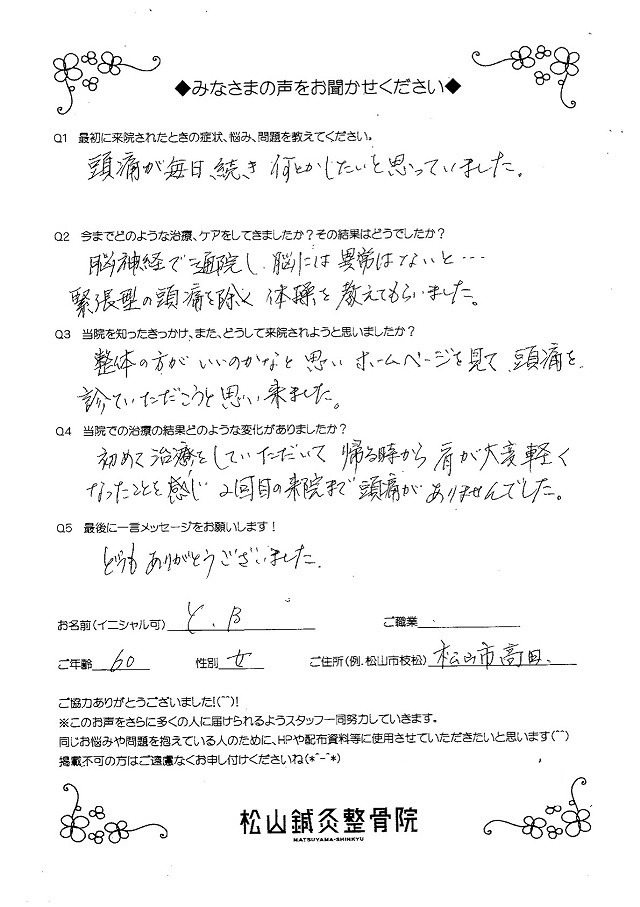 ◆みなさまの声をお聞かせください◆
Q1 最初に来院されたときの症状、悩み、問題を教えてください。
頭痛が毎日続き 何とかしたいと思っていました。
Q2 今までどのような治療、ケアをしてきましたか?その結果はどうでしたか?
脳神経で通院し、脳には異常はないと…
緊張型の頭痛を除く 体操を教えてもらいました。
Q3 当院を知ったきっかけ、また、どうして来院されようと思いましたか?
整体の方がいいのかなと思い ホームページを見て、頭痛を
診ていただこうと思い来ました。
Q4 当院での治療の結果どのような変化がありましたか?
初めて治療をしていただいて 帰る時から 肩が大変軽く
なったことを感じ 2回目の来院まで頭痛がありませんでした。
Q5 最後に一言メッセージをお願いします!
どうもありがとうございました.
お名前(イニシャル可) Y.B ご職業
ご年齢 60 性別 女 ご住所(例.松山市枝松) 松山市高田.
ご協力ありがとうございました!(^^)!
※このお声をさらに多くの人に届けられるようスタッフ一同努力していきます。
同じお悩みや問題を抱えている人のために、HPや配布資料等に使用させていただきたいと思います(^^)
掲載不可の方はご遠慮なくお申し付けくださいね(*^-^*)
松山鍼灸整骨院
MATSUYAMA-SHINKYU